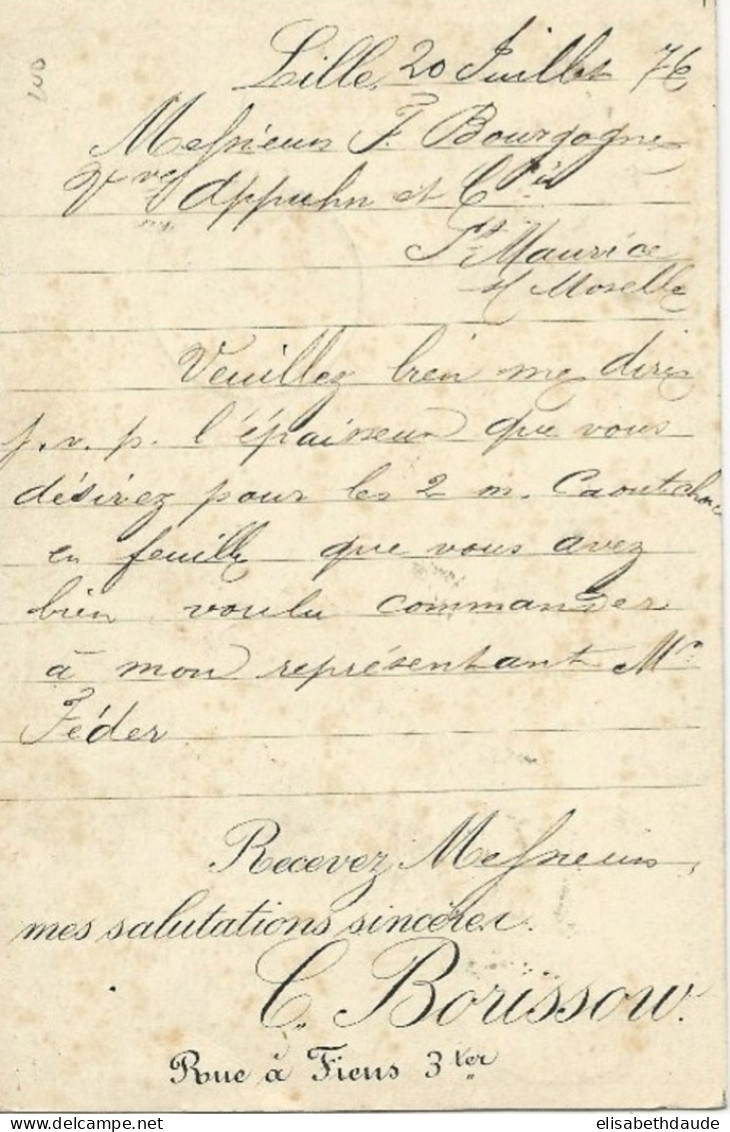 Lille, 20 Juillet 76
Messieurs F. Bourgogne
Vve Appuhn et Cie
St Maurice
s/ Moselle
Veuillez bien me dire
s. v. p. l'épaisseur que vous
désirez pour les 2 m. Caoutchouc
en feuille que vous avez
bien voulu commander
à mon représentant Mr
Féder
Recevez Messieurs,
mes salutations sincères.
C. Borissow.
Rue à Fiens 3 ter
elisabethdaude